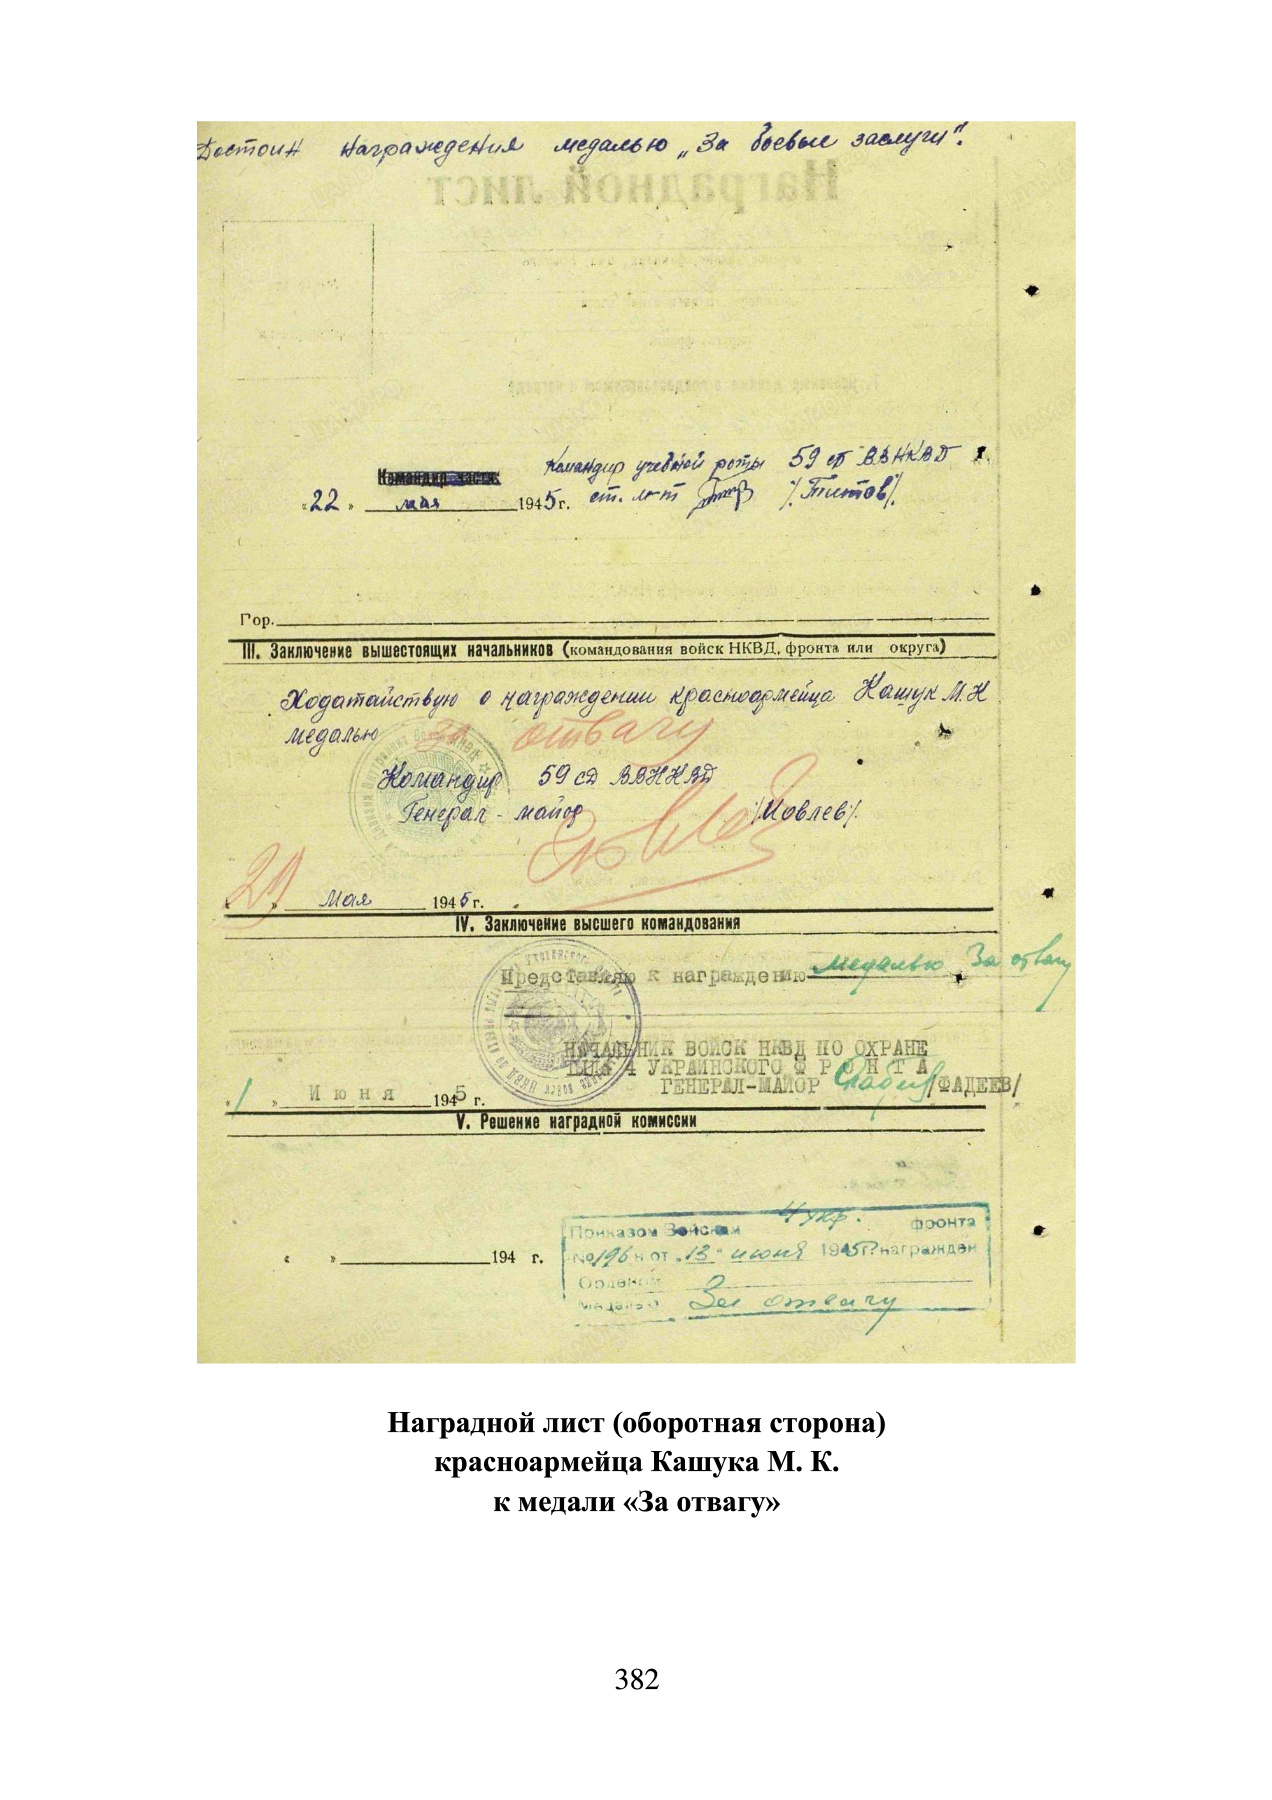 Достоин награждения медалью „За боевые заслуги".
Наградной лист
Командир учебной роты 59 сд ВВНКВД
Командир части
« 22 » мая 1945 г. ст. л-т /Титов/.
Гор.
III. Заключение вышестоящих начальников (командования войск НКВД, фронта или округа)
Ходатайствую о награждении красноармейца Кашук М. К
медалью За отвагу
Командир 59 сд ВВНКВД
Генерал-майор /Иовлев/.
29 » мая 1945 г.
IV. Заключение высшего командования
Представляю к награждению медалью За отвагу
НАЧАЛЬНИК ВОЙСК НКВД ПО ОХРАНЕ
4 УКРАИНСКОГО ФРОНТА
ГЕНЕРАЛ-МАЙОР /ФАДЕЕВ/
« 1 » Июня 1945 г.
V. Решение наградной комиссии
Приказом Войскам 4 укр. фронта
« » 194 г. №196н от „13" июня 1945г. награжден
Орденом
медалью За отвагу
Наградной лист (оборотная сторона)
красноармейца Кашука М. К.
к медали «За отвагу»
382